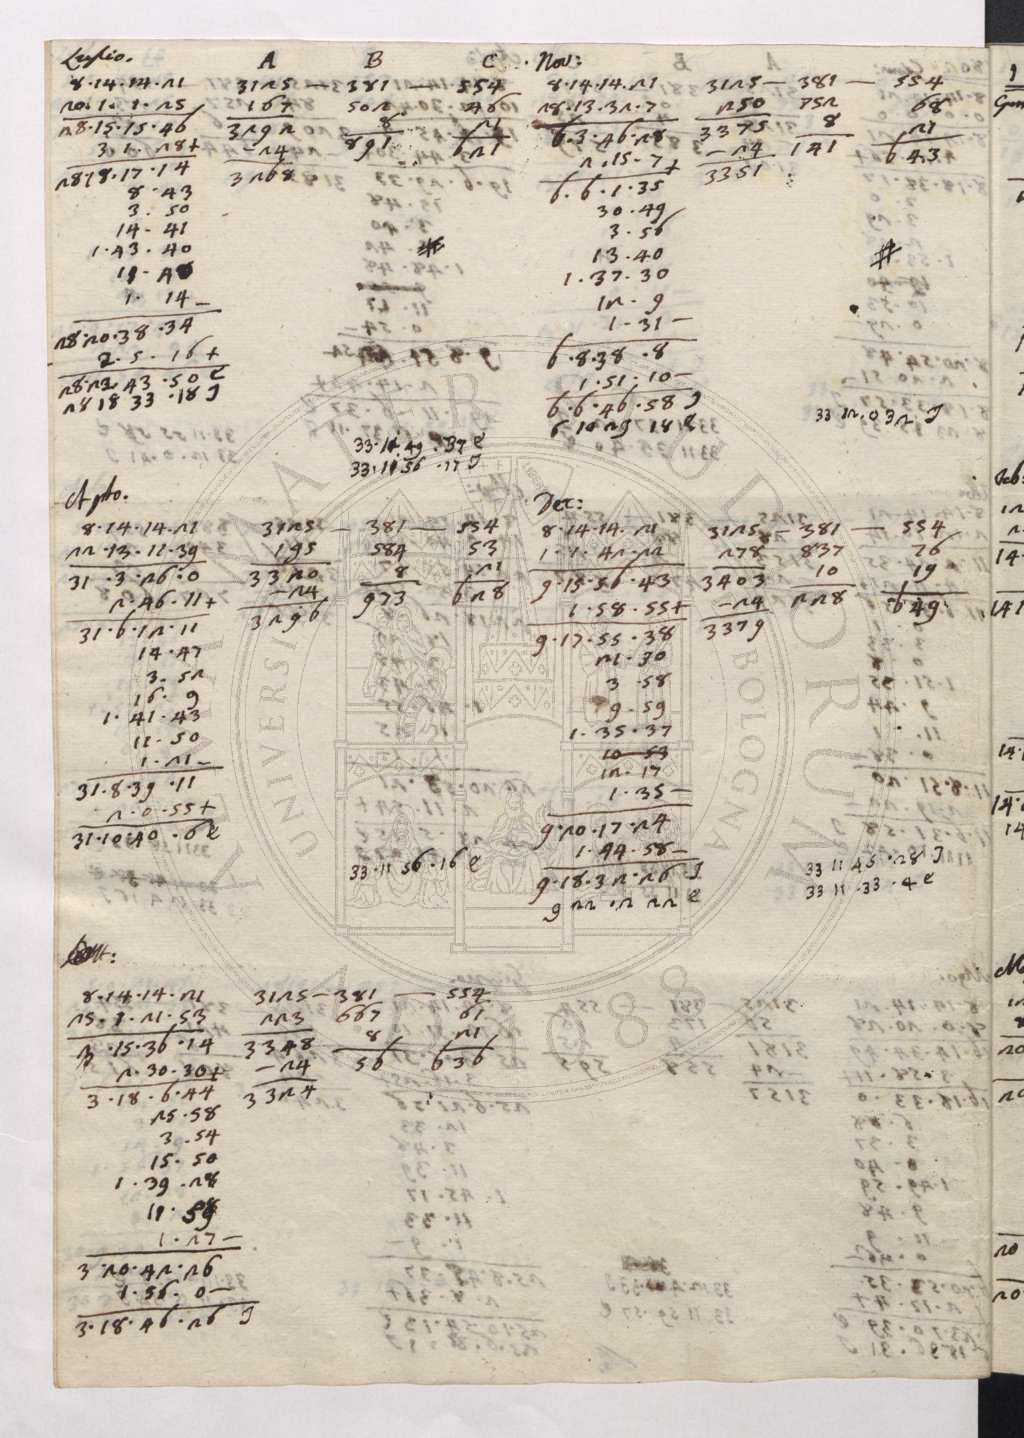 Luglio. A B C
8.14.14.21 3125 — 381 — 554
20.1.1.25 167 502 46
28.15.15.46 3292 8 21
3.1.28+ —24 891 621
28.18.17.14 3268
8.43
3.50
14.41
1.43.40
11.48
1.14—
28.20.38.34
2.5.16+
28.22.43.50 e
28 18 33.18 J
33.11.49.39 e
33.11 56.17 J
Nov:
8.14.14.21 3125 — 381 — 554
28.13.32.7 250 752 68
6.3.46.28 3375 8 21
2.15.7+ —24 141 643
6.6.1.35 3351
30.49
3.56
13.40
1.37.30
12.9
1.31—
6.8.38.8
1.51.10—
6.6.46.58 J
6 10 29 18 e
33 12.0 32. J
Agto.
8.14.14.21 3125 — 381 — 554
22.13.11.39 195 584 53
31.3.26.0 3320 8 21
2.46.11+ —24 973 628
31.6.12.11 3296
14.47
3.52
16.9
1.41.43
11.50
1.21—
31.8.39.11
2.0.55+
31.10.40.6 e
33.11 56.16 e
Dec:
8.14.14.21 3125 — 381 — 554
1.1.42.22 278 837 76
9.15.56.43 3403 10 19
1.58.55+ —24 228 649
9.17.55.38 3379
21.30
3.58
9.59
1.35.37
10 53
12.17
1.35—
9.20.17.24
1.44.58—
9.18.32.26 J
9 22.12 22 e
33 11 45.28 J
33 11.33.4 e
Ott:
8.14.14.21 3125 — 381 — 554
25.1.21.53 223 667 61
3.15.36.14 3348 8 21
2.30.30+ —24 56 636
3.18.6.44 3324
25.58
3.54
15.50
1.39.28
11.59
1.27—
3.20.42.26
1.56.0—
3.18.46.26 J